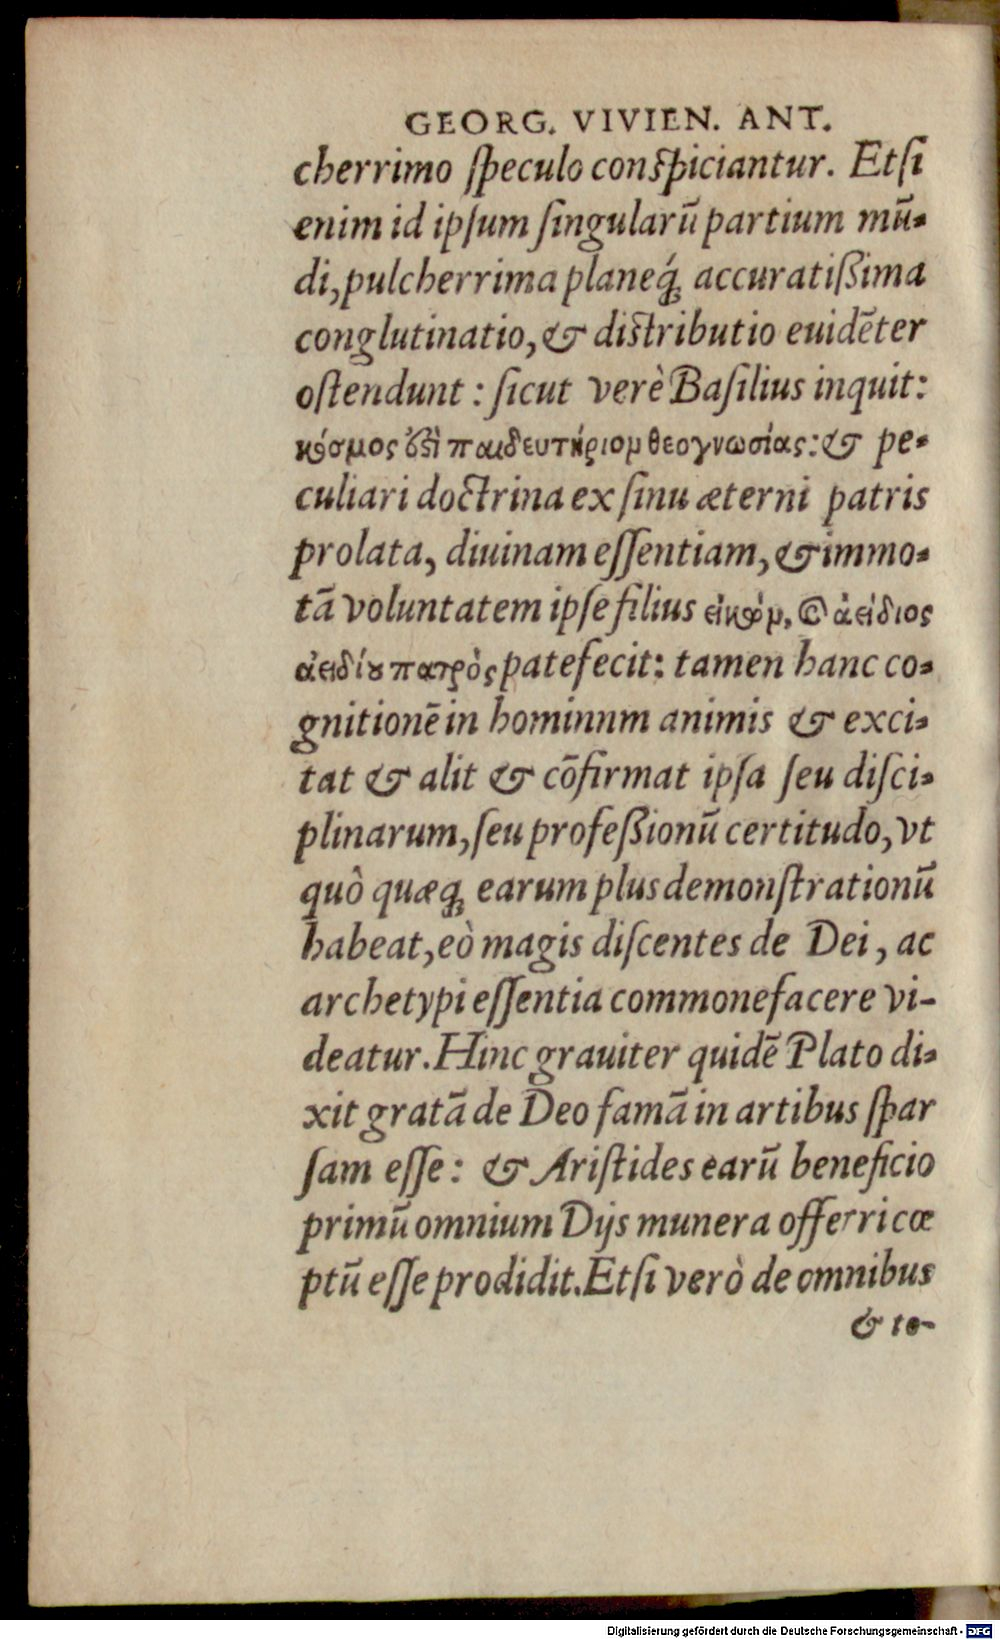 GEORG. VIVIEN. ANT.
cherrimo ſpeculo conſpiciantur. Etſi
enim id ipſum ſingularū partium mū-
di, pulcherrima planeq́; accuratißima
conglutinatio, & diſtributio euidēter
oſtendunt: ſicut verè Baſilius inquit:
κόσμος ἐστὶ παιδευτήριον θεογνωσίας: & pe-
culiari doctrina ex ſinu æterni patris
prolata, diuinam eſſentiam, & immo-
tā voluntatem ipſe filius εἰκὼν, ὁ ἀείδιος
ἀειδίου πατρὸς patefecit: tamen hanc co-
gnitionē in hominnm animis & exci-
tat & alit & cōfirmat ipſa ſeu diſci-
plinarum, ſeu profeßionū certitudo, vt
quò quæq; earum plus demonſtrationū
habeat, eò magis diſcentes de Dei, ac
archetypi eſſentia commonefacere vi-
deatur. Hinc grauiter quidē Plato di-
xit gratā de Deo famā in artibus ſpar
ſam eſſe: & Ariſtides earū beneficio
primū omnium Dijs munera offerri cœ
ptū eſſe prodidit. Etſi verò de omnibus
& to-
Digitalisierung gefördert durch die Deutsche Forschungsgemeinschaft - DFG